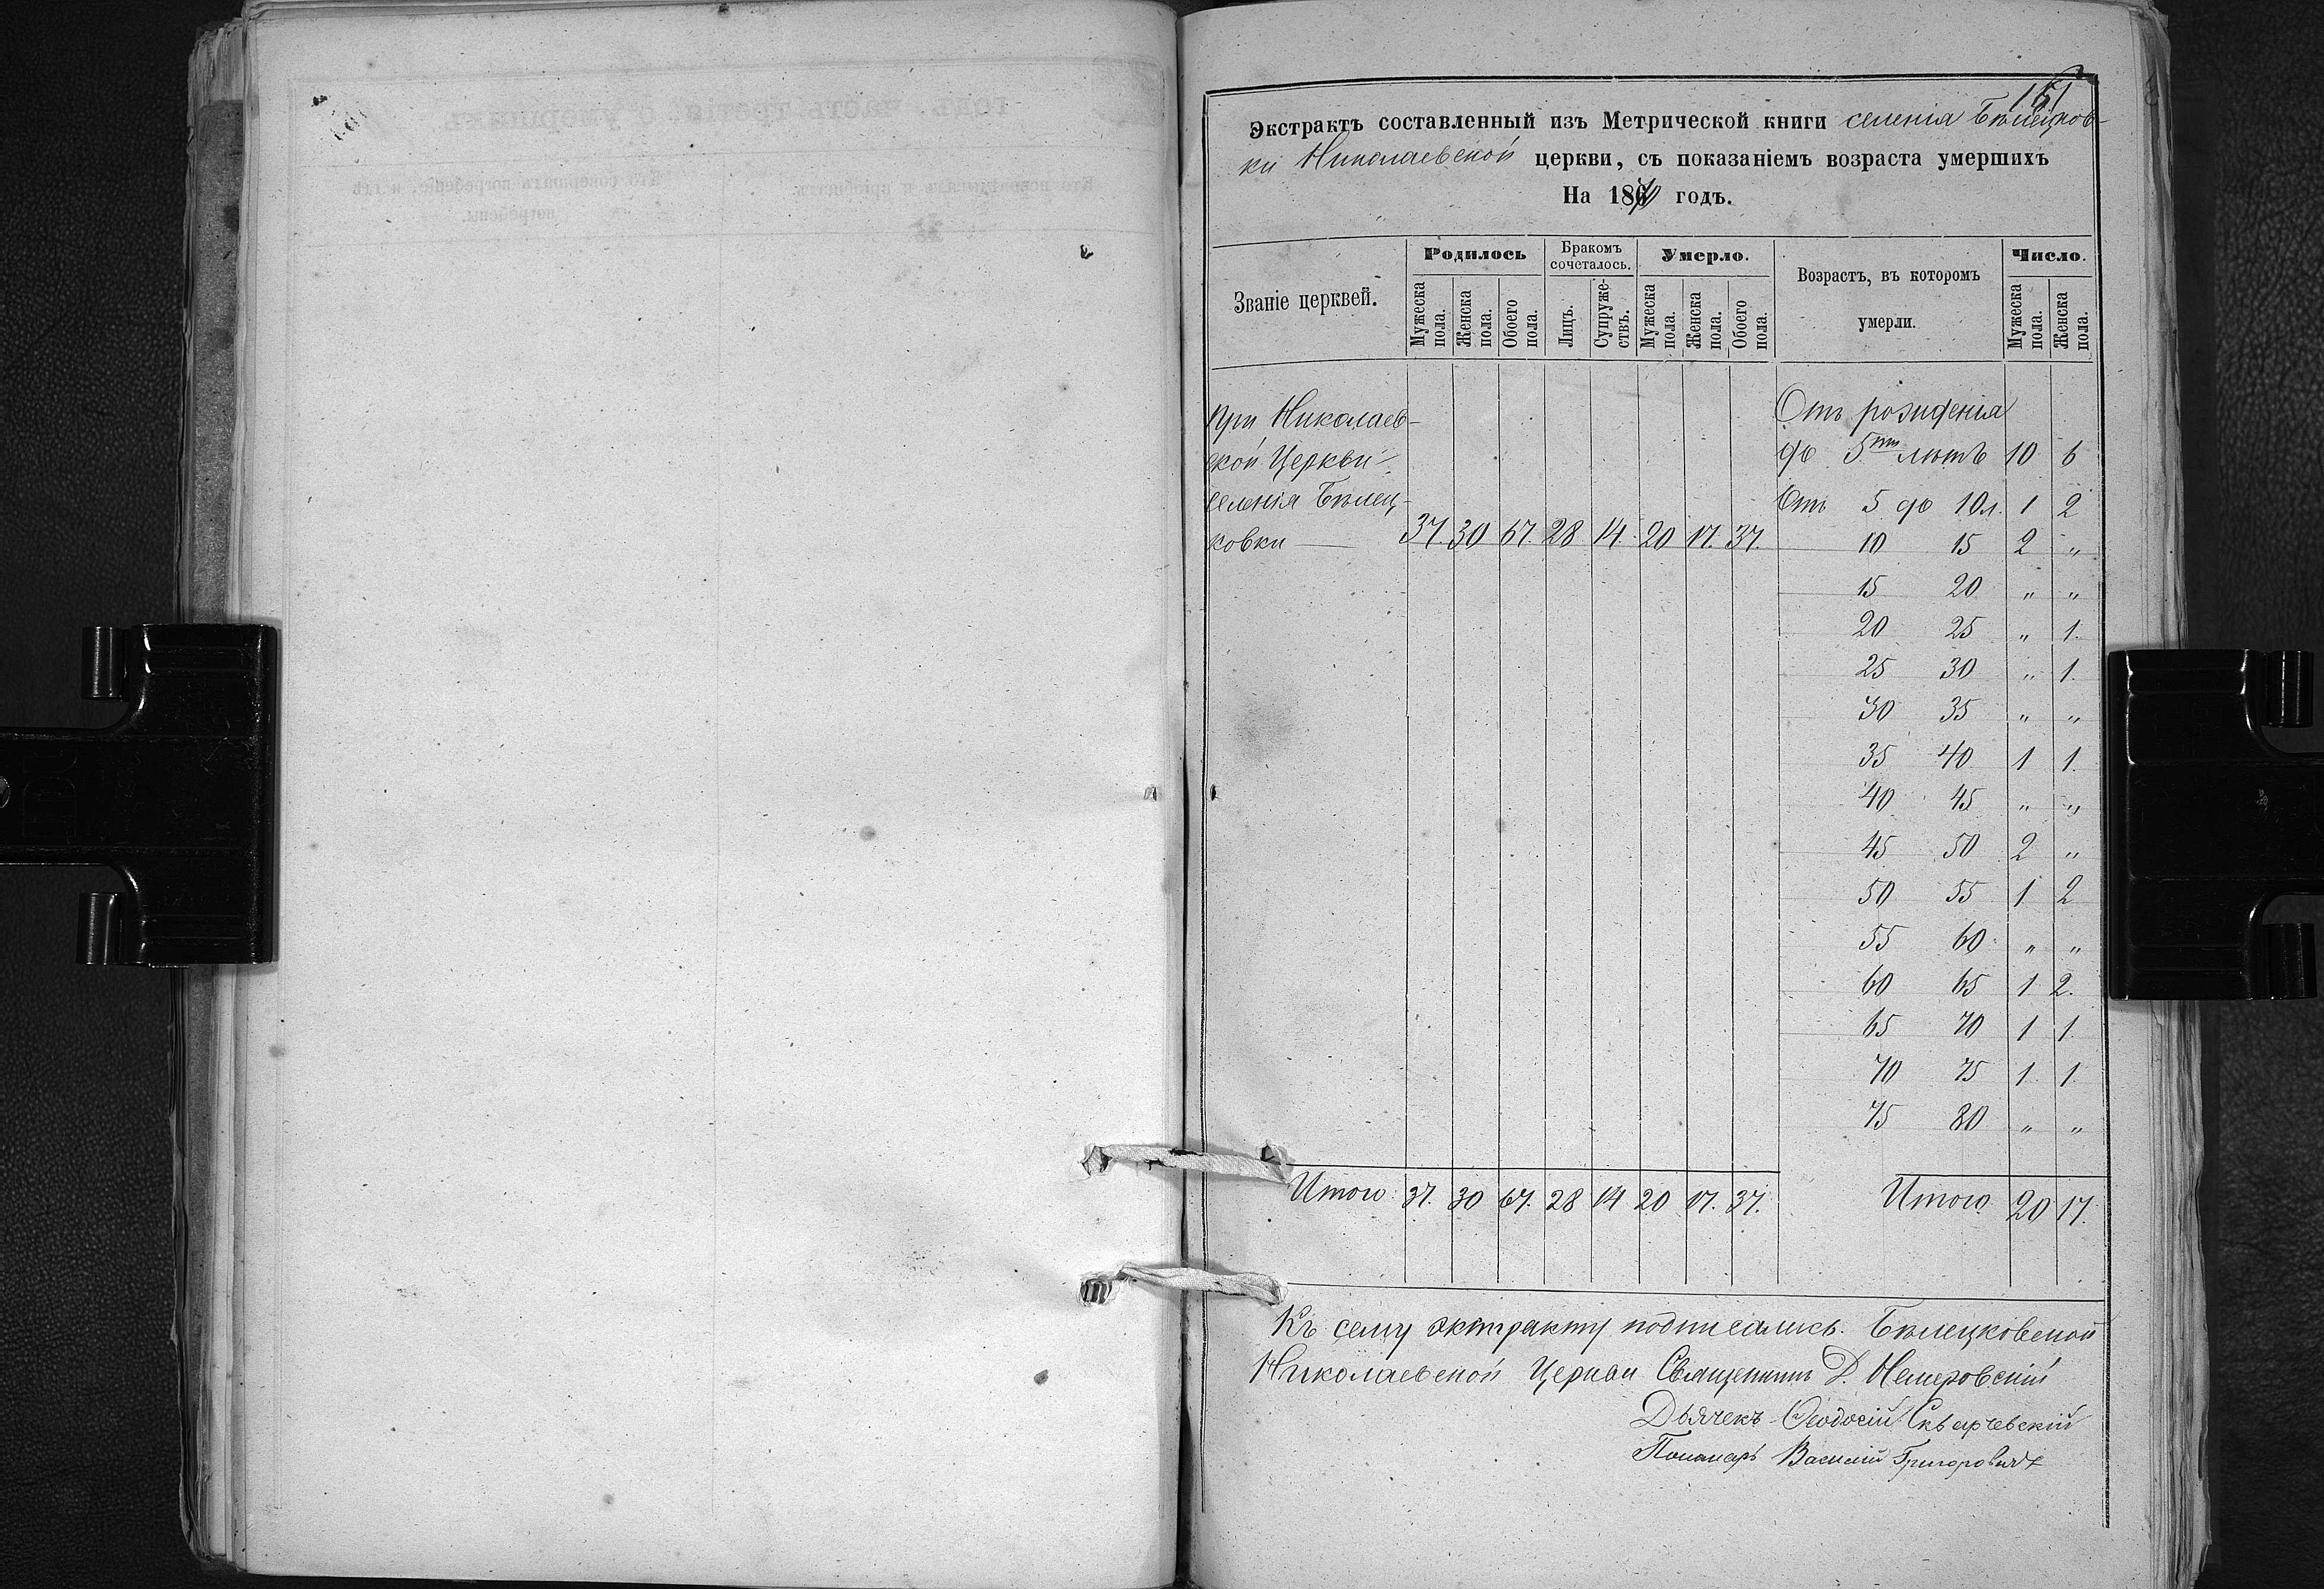 161
Экстрактъ составленный изъ Метрической книги селенія Бѣлецков-
ки Николаевской церкви, съ показаніемъ возраста умершихъ
На 1870 годъ.
Званіе церквей.
Родилось
Бракомъ сочеталось.
Умерло.
Возрастъ, въ которомъ умерли.
Число.
Мужеска пола.
Женска пола.
Обоего пола.
Лицъ.
Супружествъ.
Мужеска пола.
Женска пола.
Обоего пола.
Мужеска пола.
Женска пола.
При Николаев-
ской Церкви
селенія Бѣлец-
ковки — 37. 30 67. 28 14. 20 17. 37.
Отъ рожденія
до 5ти лѣтъ 10 6
Отъ 5 до 10 л. 1 2
10 15 2 „
15 20 „ „
20 25 „ 1.
25 30 „ 1.
30 35 „ „
35 40 1 1.
40 45 „ „
45 50 2 „
50 55 1 2
55 60 „ „
60 65 1 2.
65 70 1 1.
70 75 1. 1.
75 80 „ „
Итого 37. 30 67. 28 14 20 17. 37. Итого 20 17.
Къ сему экстракту подписались. Бѣлецковской
Николаевской Церкви Священникъ Д. Немеровскій
Дьячекъ Ѳеодосій Скварчевскій
Пономарь Василій Григоровичъ